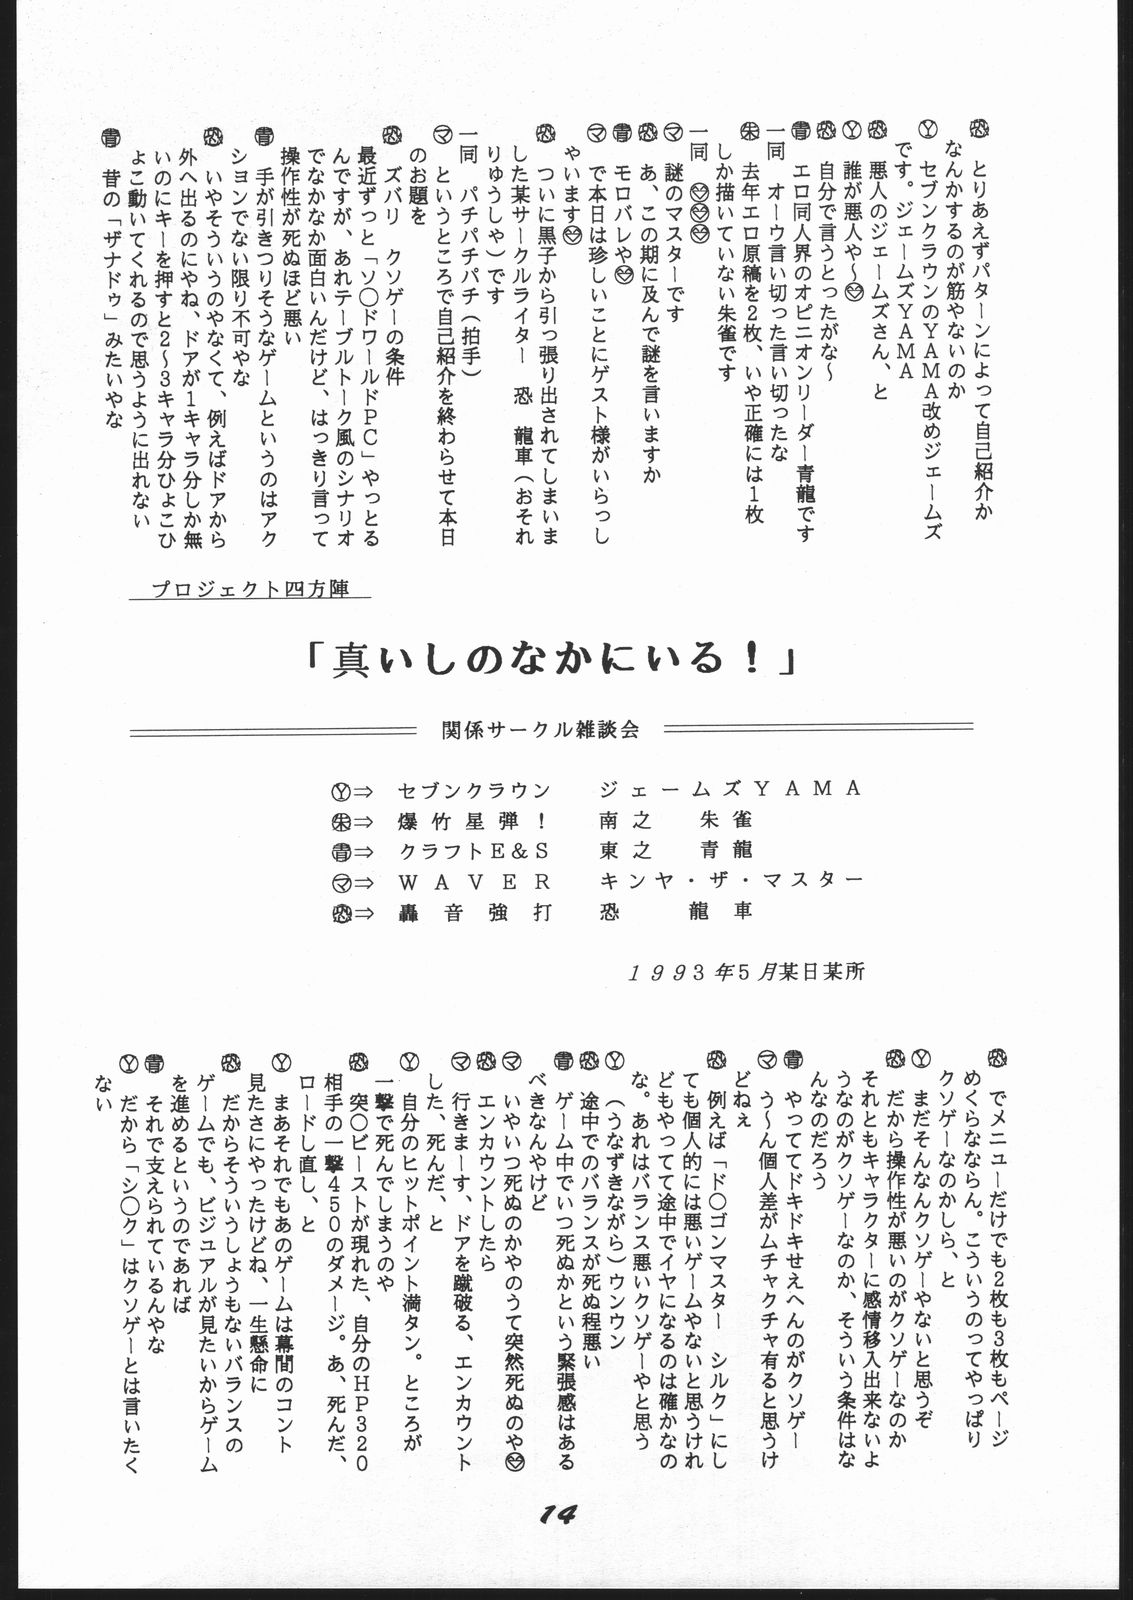 恐　とりあえずパターンによって自己紹介か
なんかするのが筋やないのか
Ⓨ　セブンクラウンのＹＡＭＡ改めジェームズ
です。ジェームズＹＡＭＡ
恐　悪人のジェームズさん、と
Ⓨ　誰が悪人や～
恐　自分で言うとったがな～
青　エロ同人界のオピニオンリーダー青龍です
一同　オーウ言い切った言い切ったな
朱　去年エロ原稿を２枚、いや正確には１枚
しか描いていない朱雀です
一同
マ　謎のマスターです
恐　あ、この期に及んで謎を言いますか
青　モロバレや
マ　で本日は珍しいことにゲスト様がいらっし
ゃいます
恐　ついに黒子から引っ張り出されてしまいま
した某サークルライター　恐　龍車（おそれ
りゅうしゃ）です
一同　パチパチパチ（拍手）
マ　というところで自己紹介を終わらせて本日
のお題を
恐　ズバリ　クソゲーの条件
最近ずっと「ソ〇ドワールドＰＣ」やっとる
んですが、あれテーブルトーク風のシナリオ
でなかなか面白いんだけど、はっきり言って
操作性が死ぬほど悪い
青　手が引きつりそうなゲームというのはアク
ションでない限り不可やな
恐　いやそういうのやなくて、例えばドアから
外へ出るのにやね、ドアが１キャラ分しか無
いのにキーを押すと２～３キャラ分ひょこひ
ょこ動いてくれるので思うように出れない
青　昔の「ザナドゥ」みたいやな
プロジェクト四方陣
「真いしのなかにいる！」
関係サークル雑談会
Ⓨ⇒　セブンクラウン　ジェームズＹＡＭＡ
朱⇒　爆竹星弾！　南之　朱雀
青⇒　クラフトＥ＆Ｓ　東之　青龍
マ⇒　ＷＡＶＥＲ　キンヤ・ザ・マスター
恐⇒　轟音強打　恐　龍車
１９９３年５月某日某所
恐　でメニューだけでも２枚も３枚もページ
めくらなならん。こういうのってやっぱり
クソゲーなのかしら、と
Ⓨ　まだそんなんクソゲーやないと思うぞ
恐　だから操作性が悪いのがクソゲーなのか
それともキャラクターに感情移入出来ないよ
うなのがクソゲーなのか、そういう条件はな
んなのだろう
青　やっててドキドキせえへんのがクソゲー
マ　う～ん個人差がムチャクチャ有ると思うけ
どねぇ
恐　例えば「ド〇ゴンマスター　シルク」にし
ても個人的には悪いゲームやないと思うけれ
どもやってて途中でイヤになるのは確かなの
な。あれはバランス悪いクソゲーやと思う
Ⓨ　（うなずきながら）ウンウン
恐　途中でのバランスが死ぬ程悪い
青　ゲーム中でいつ死ぬかという緊張感はある
べきなんやけど
マ　いやいつ死ぬのかやのうて突然死ぬのや
恐　エンカウントしたら
マ　行きまーす、ドアを蹴破る、エンカウント
した、死んだ、と
Ⓨ　自分のヒットポイント満タン。ところが
一撃で死んでしまうのや
恐　突〇ビーストが現れた、自分のＨＰ３２０
相手の一撃４５０のダメージ。あ、死んだ、
ロードし直し、と
Ⓨ　まあそれでもあのゲームは幕間のコント
見たさにやったけどね、一生懸命に
恐　だからそういうしょうもないバランスの
ゲームでも、ビジュアルが見たいからゲーム
を進めるというのであれば
青　それで支えられているんやな
Ⓨ　だから「シ〇ク」はクソゲーとは言いたく
ない
14